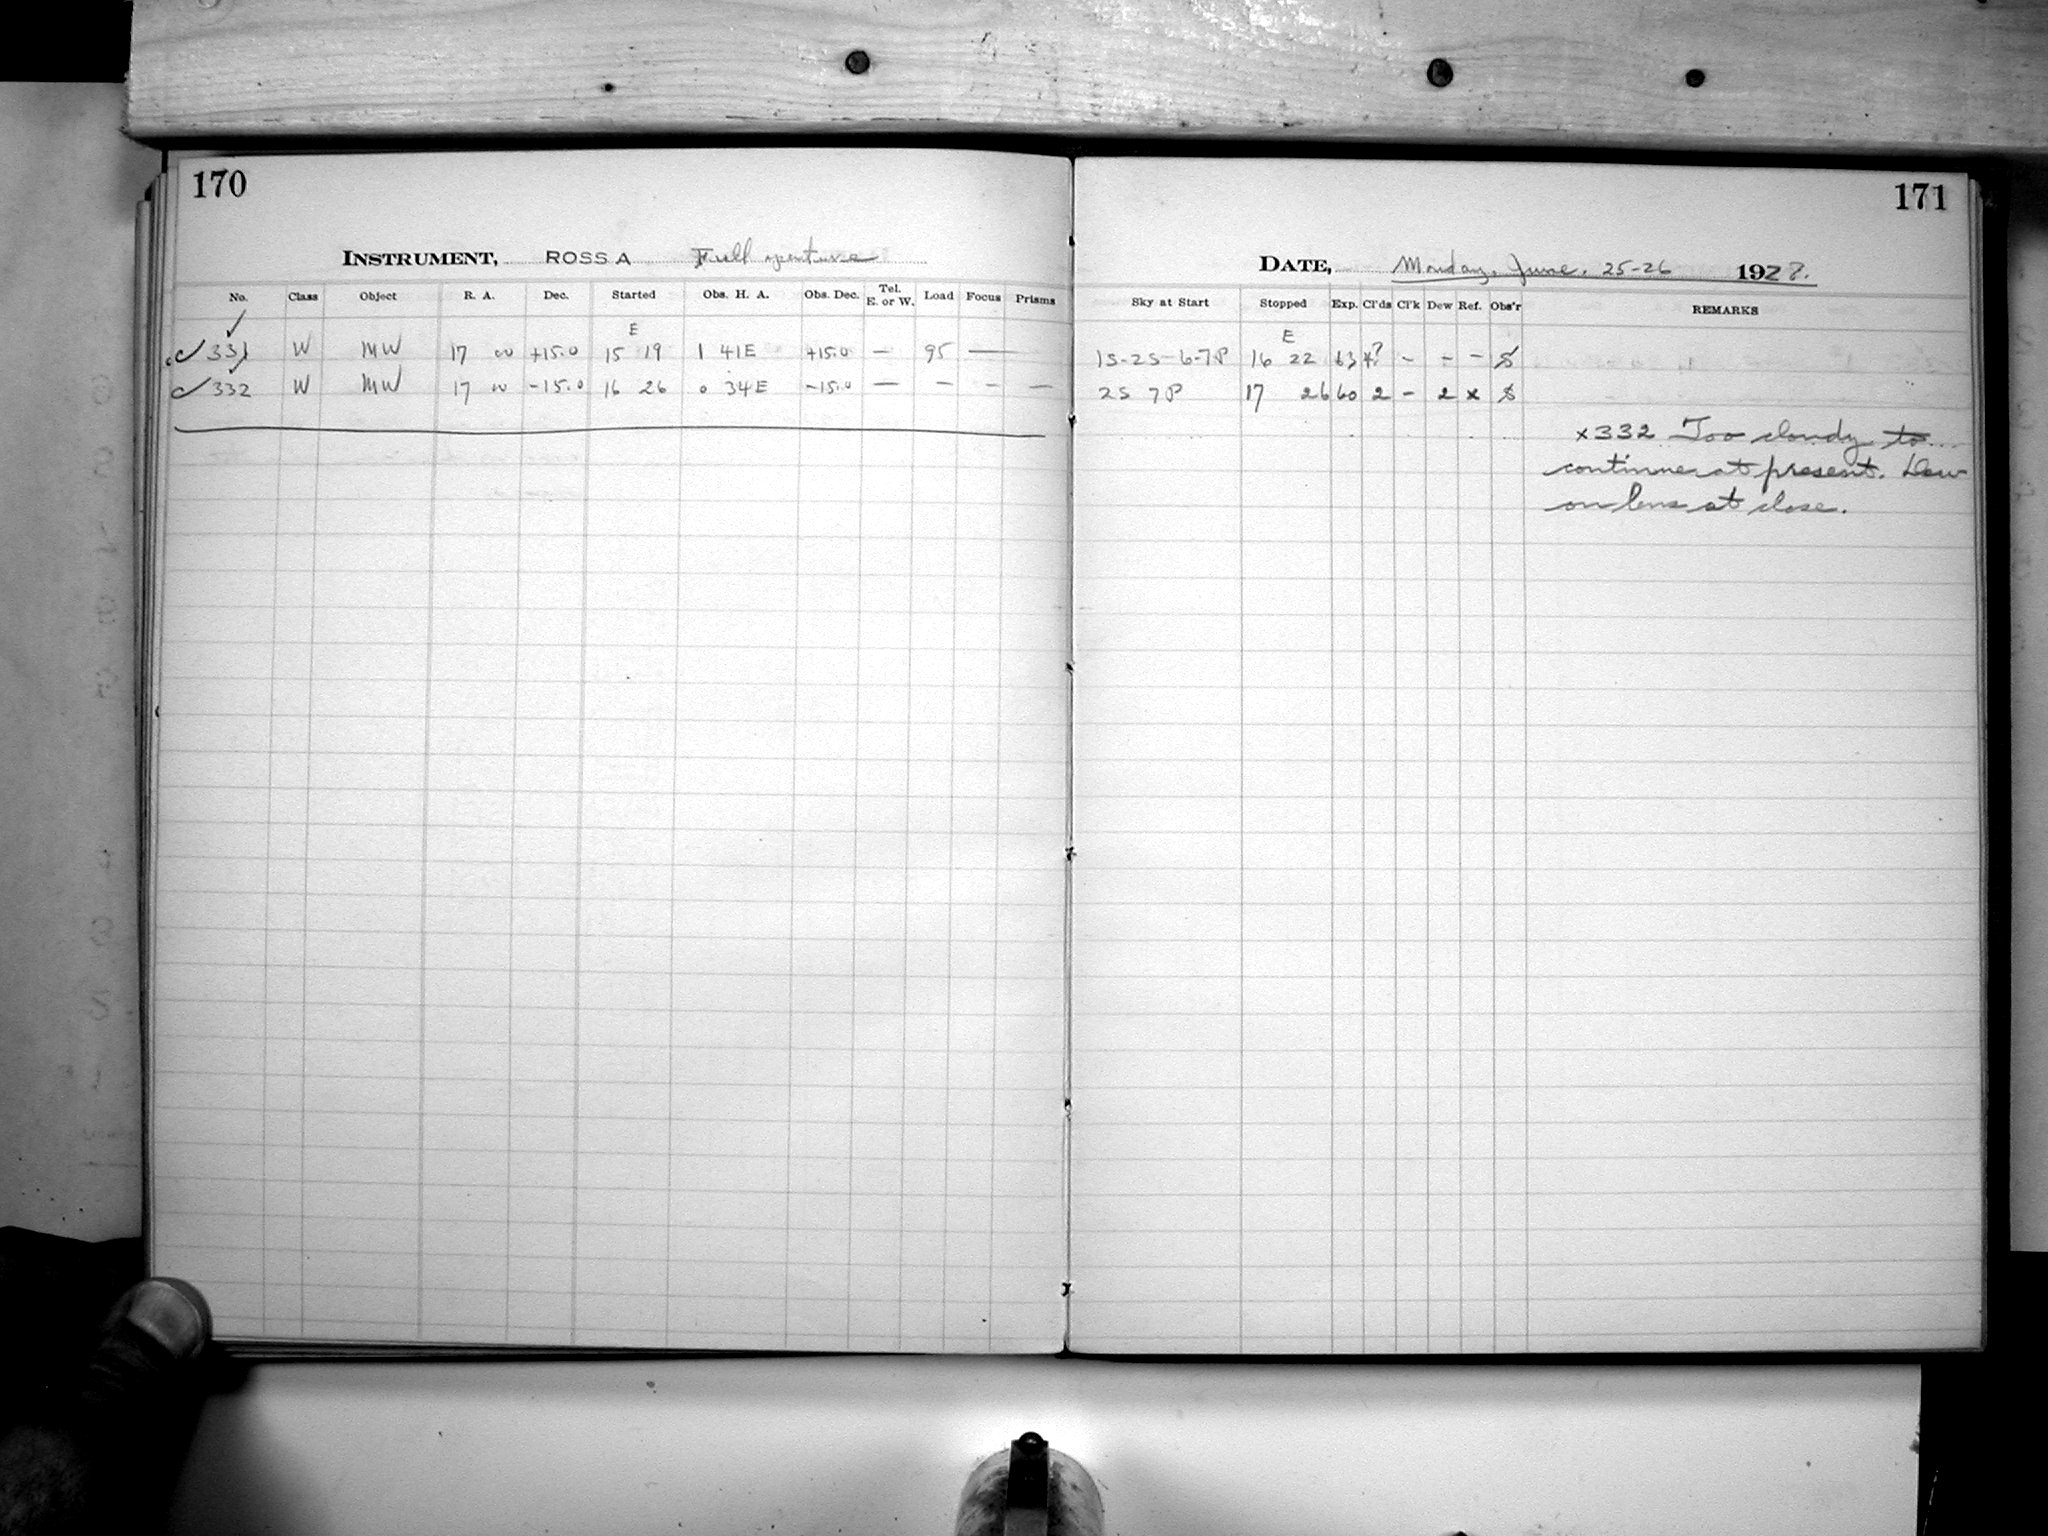 170
INSTRUMENT, ROSS A Full aperture
No. Class Object R. A. Dec. Started Obs. H. A. Obs. Dec. Tel. E. or W. Load Focus Prisms
E
✓ 331 W MW 17 00 +15.0 15 19 1 41E +15.0 — 95 —
✓ 332 W MW 17 00 -15.0 16 26 0 34E -15.0 — — — —
171
DATE, Monday, June. 25-26 1928.
Sky at Start Stopped Exp. Cl'ds Cl'k Dew Ref. Obs'r REMARKS
E
1S-2S-6-7P 16 22 63 4? - - - S
2S 7P 17 26 60 2 - 2 x S
x332 Too cloudy to
continue at present. Dew
on lens at close.